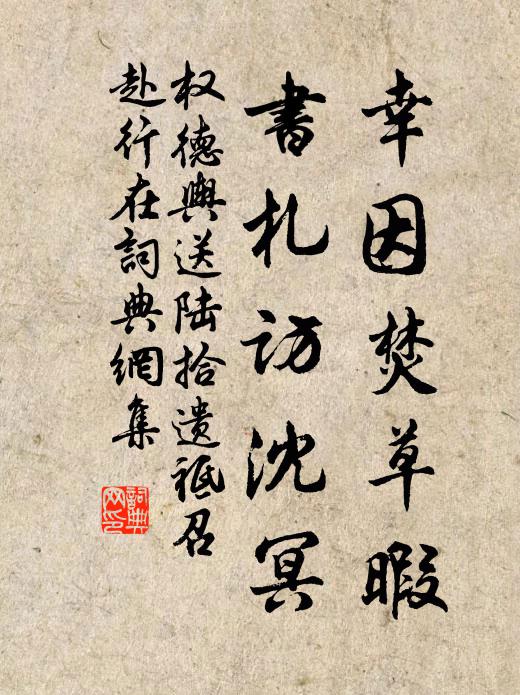 幸因焚草暇
書札訪沈冥
权德輿送陆拾遗祗召
赴行在詞典網集
詞典網印